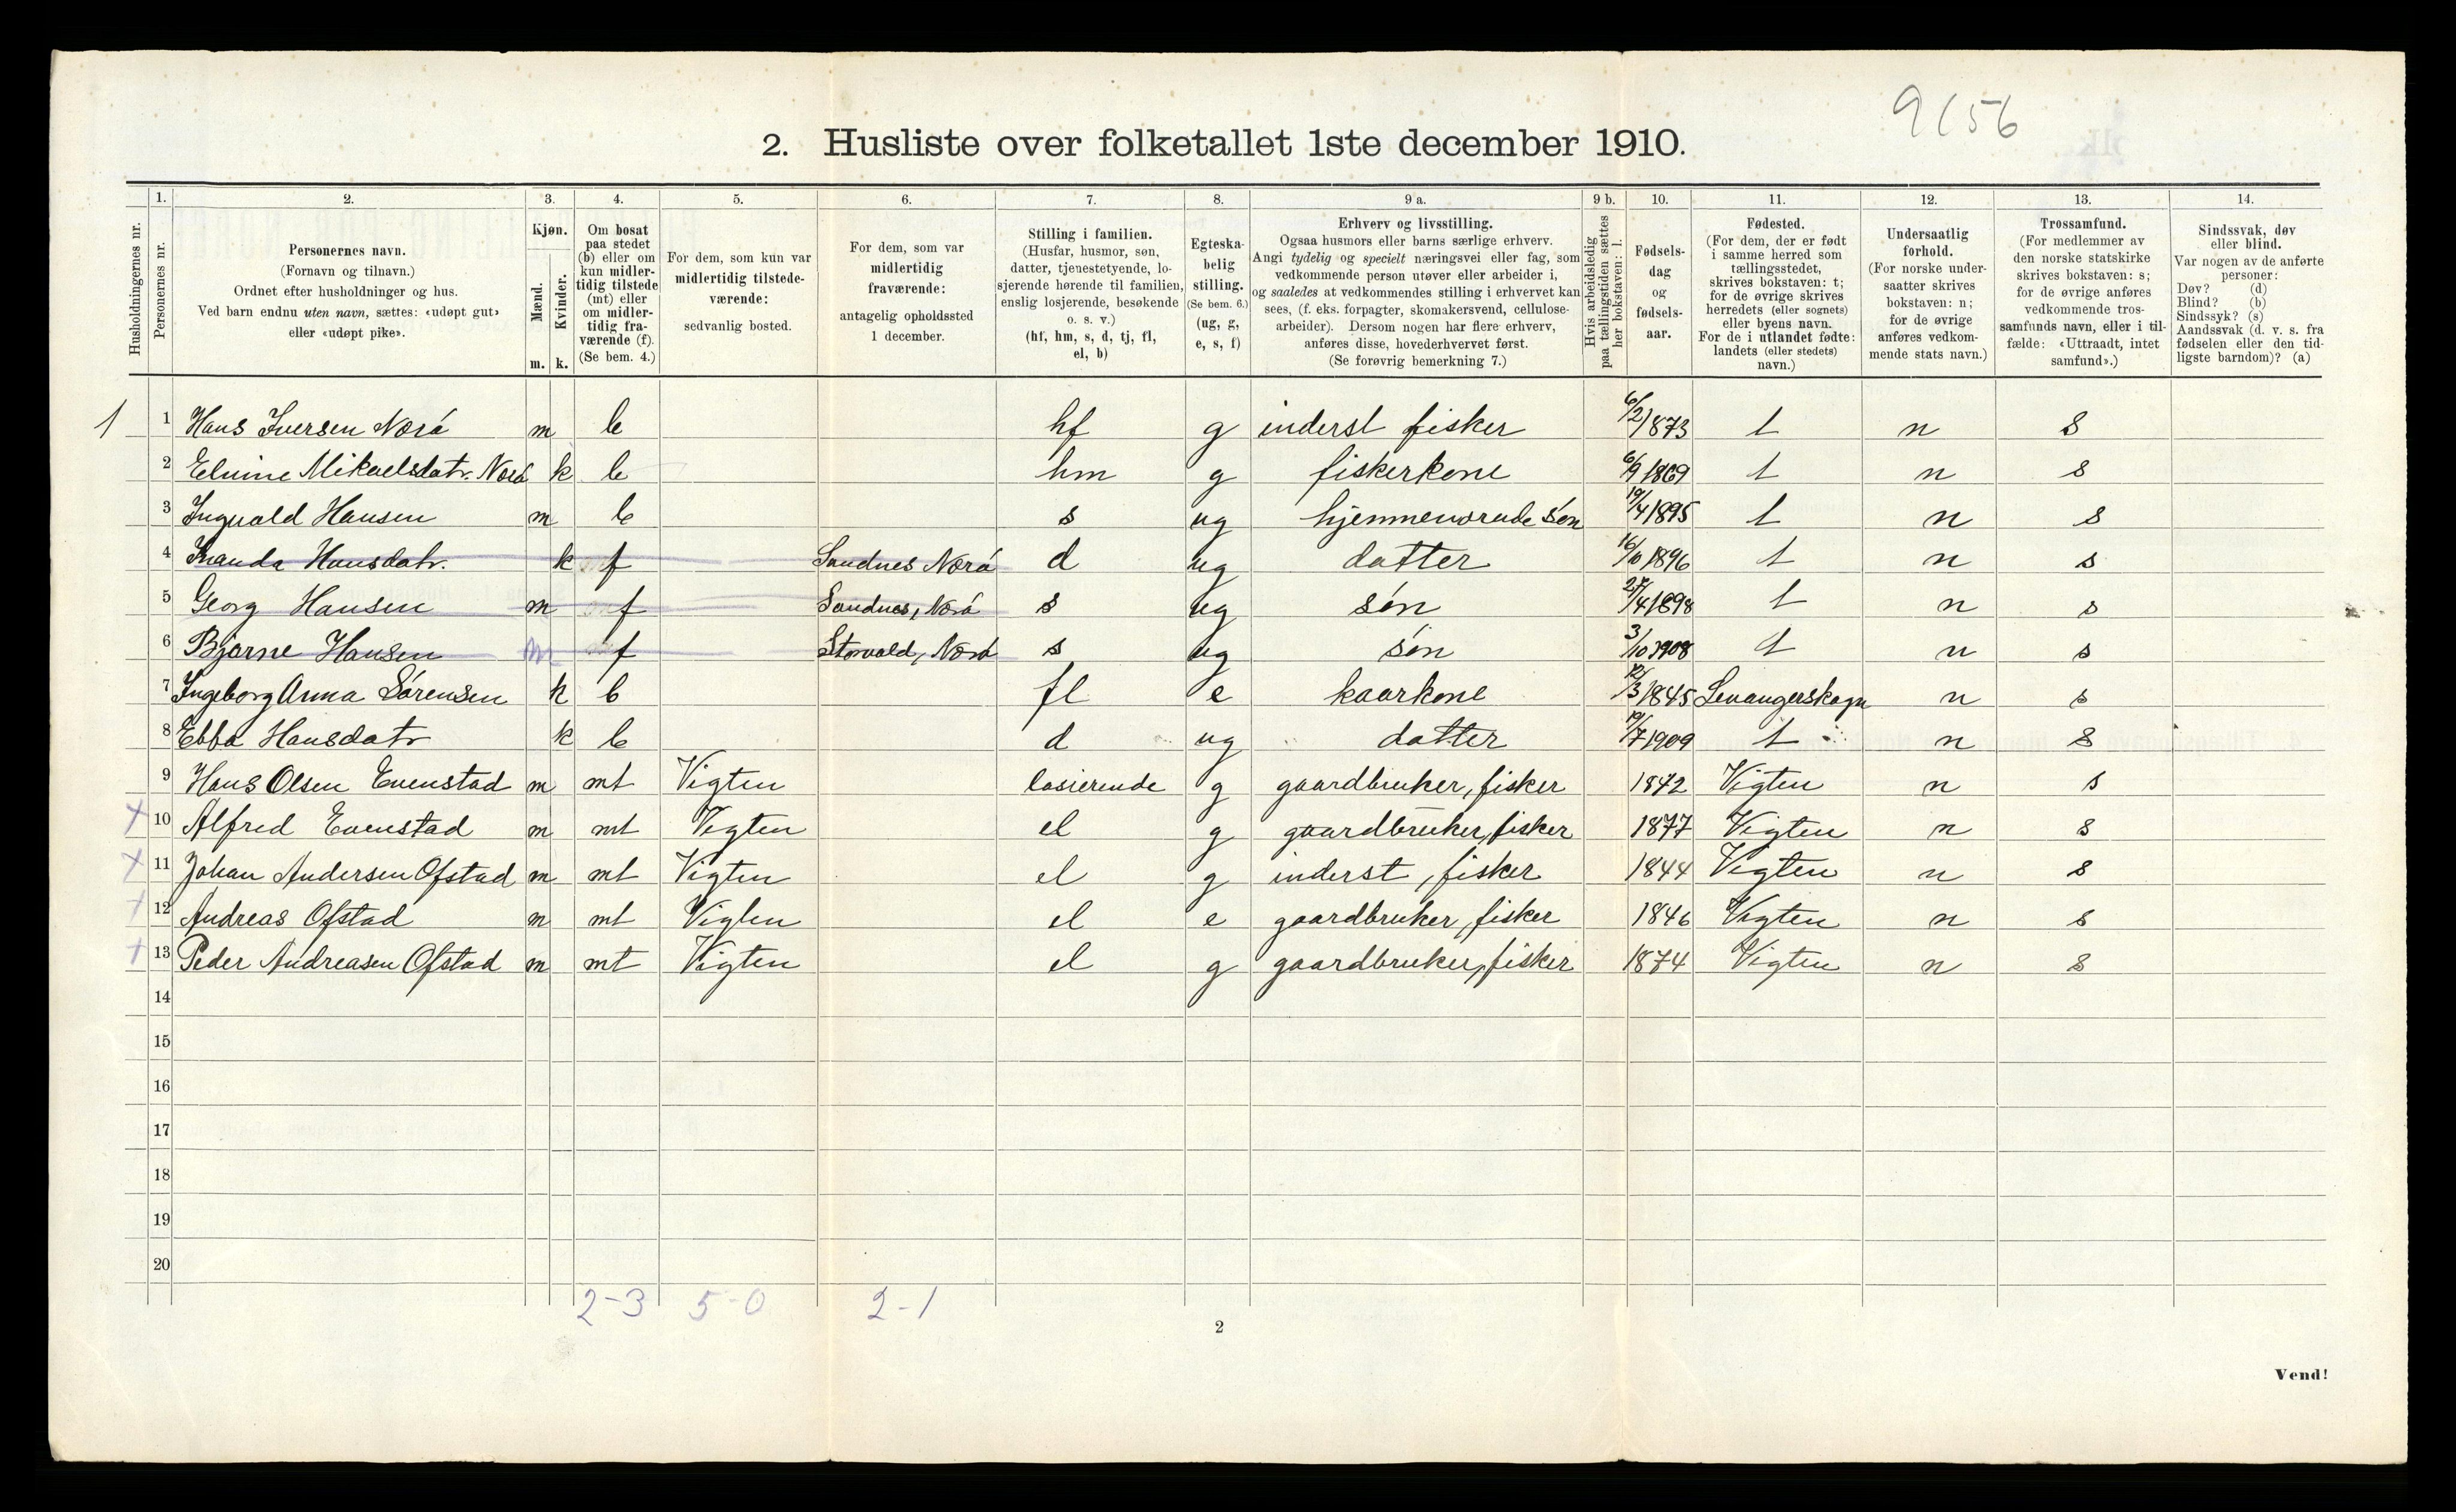 9 (56
2. Husliste over folketallet 1ste december 1910.
Husholdningernes nr.
1. Personernes nr.
2. Personernes navn. (Fornavn og tilnavn.) Ordnet efter husholdninger og hus. Ved barn endnu uten navn, sættes: «udøpt gut» eller «udøpt pike».
3. Kjøn. Mænd. m. Kvinder. k.
4. Om bosat paa stedet (b) eller om kun midlertidig tilstede (mt) eller om midlertidig fraværende (f). (Se bem. 4.)
5. For dem, som kun var midlertidig tilstedeværende: sedvanlig bosted.
6. For dem, som var midlertidig fraværende: antagelig opholdssted 1 december.
7. Stilling i familien. (Husfar, husmor, søn, datter, tjenestetyende, losjerende hørende til familien, enslig losjerende, besøkende o. s. v.) (hf, hm, s, d, tj, fl, el, b)
8. Egteskabelig stilling. (Se bem. 6.) (ug, g, e, s, f)
9 a. Erhverv og livsstilling. Ogsaa husmors eller barns særlige erhverv. Angi tydelig og specielt næringsvei eller fag, som vedkommende person utøver eller arbeider i, og saaledes at vedkommendes stilling i erhvervet kan sees, (f. eks. forpagter, skomakersvend, cellulosearbeider). Dersom nogen har flere erhverv, anføres disse, hovederhvervet først. (Se forøvrig bemerkning 7.)
9 b. Hvis arbeidsledig paa tællingstiden sættes her bokstaven: l.
10. Fødselsdag og fødselsaar.
11. Fødested. (For dem, der er født i samme herred som tællingsstedet, skrives bokstaven: t; for de øvrige skrives herredets (eller sognets) eller byens navn. For de i utlandet fødte: landets (eller stedets) navn.)
12. Undersaatlig forhold. (For norske undersaatter skrives bokstaven: n; for de øvrige anføres vedkommende stats navn.)
13. Trossamfund. (For medlemmer av den norske statskirke skrives bokstaven: s; for de øvrige anføres vedkommende trossamfunds navn, eller i tilfælde: «Uttraadt, intet samfund».)
14. Sindssvak, døv eller blind. Var nogen av de anførte personer: Døv? (d) Blind? (b) Sindssyk? (s) Aandssvak (d. v. s. fra fødselen eller den tidligste barndom)? (a)
1 1 Hans Iversen Norö m b hf g inderst fisker 6/2 1873 t n s
2 Elvine Mikaelsdatr. Norö k b hm g fiskerkone 6/9 1869 t n s
3 Ingvald Hansen m b s ug hjemmenværende sön 19/4 1895 t n s
4 Hansdatr. k f Sandnes Norö d ug datter 16/10 1896 t n s
5 Georg Hansen m f Sandnes, Norö s ug sön 27/4 1898 t n s
6 Bjarne Hansen m f Storvold, Norö s ug sön 3/10 1908 t n s
7 Ingeborg Anna Sörensen k b fl e kaarkone 12/3 1845 Levangerskogn n s
8 Ebba Hansdatr k b d ug datter 19/7 1909 t n s
9 Hans Olsen Evenstad m mt Vigten losierende g gaardbruker, fisker 1872 Vigten n s
10 Alfred Evenstad m mt Vigten el g gaardbruker, fisker 1877 Vigten n s
11 Johan Andersen Ofstad m mt Vigten el g inderst, fisker 1844 Vigten n s
12 Andreas Ofstad m mt Vigten el e gaardbruker, fisker 1846 Vigten n s
13 Peder Andreasen Ofstad m mt Vigten el g gaardbruker, fisker 1874 Vigten n s
14
15
16
17
18
19
20
2-3 5-0 2-1
2
Vend!